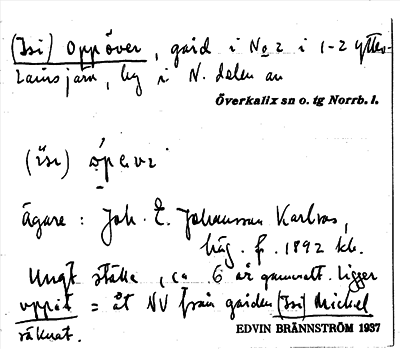 (Isi) Oppöver, gård i No 2 i 1-2 Ytter-
Lainsjärv, lig i N. delen av
Överkalix sn o. tg Norrb. l.
(isi)
ägare: Joh. E. Johansson Karlsas,
häg. f. 1892 kb.
Ungt ställe, ca 6 år gammalt. Ligger
uppåt = åt NV från gården (Isi) Mickel
räknat.
EDVIN BRÄNNSTRÖM 1937